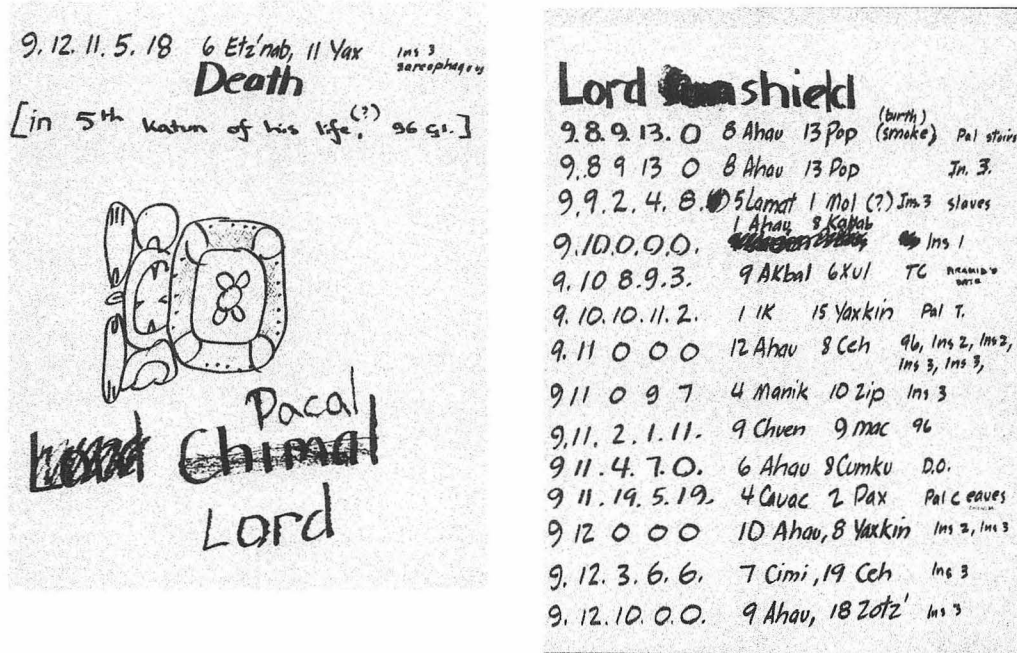 9.12.11.5.18 6 Etz'nab, 11 Yax Ins 3
sarcophagus
Death
[in 5th katun of his life,(?) 96 G1.]
Pacal
Lord Chimal
Lord
Lord shield
(birth)
9.8.9.13.0 8 Ahau 13 Pop (smoke) Pal stairs
9.8 9 13 0 8 Ahau 13 Pop In. 3.
9.9.2.4.8. 5 Lamat 1 Mol (?) Ins.3 slaves
1 Ahau 8 Kayab
9.10.0.0.0. Ins 1
9.10 8.9.3. 9 Akbal 6 Xul TC
9.10.10.11.2. 1 IK 15 Yaxkin Pal T.
9.11 0 0 0 12 Ahau 8 Ceh 96, Ins 2, Ins 2,
Ins 3, Ins 3,
9 11 0 9 7 4 Manik 10 Zip Ins 3
9,11, 2.1.11. 9 Chuen 9 mac 96
9 11.4.7.0. 6 Ahau 8 Cumku D.O.
9 11.19.5.19. 4 Cauac 2 Pax Pal C eaves
9 12 0 0 0 10 Ahau, 8 Yaxkin Ins 2, Ins 3
9.12.3.6.6. 7 Cimi, 19 Ceh Ins 3
9.12.10.0.0. 9 Ahau, 18 Zotz' Ins 3